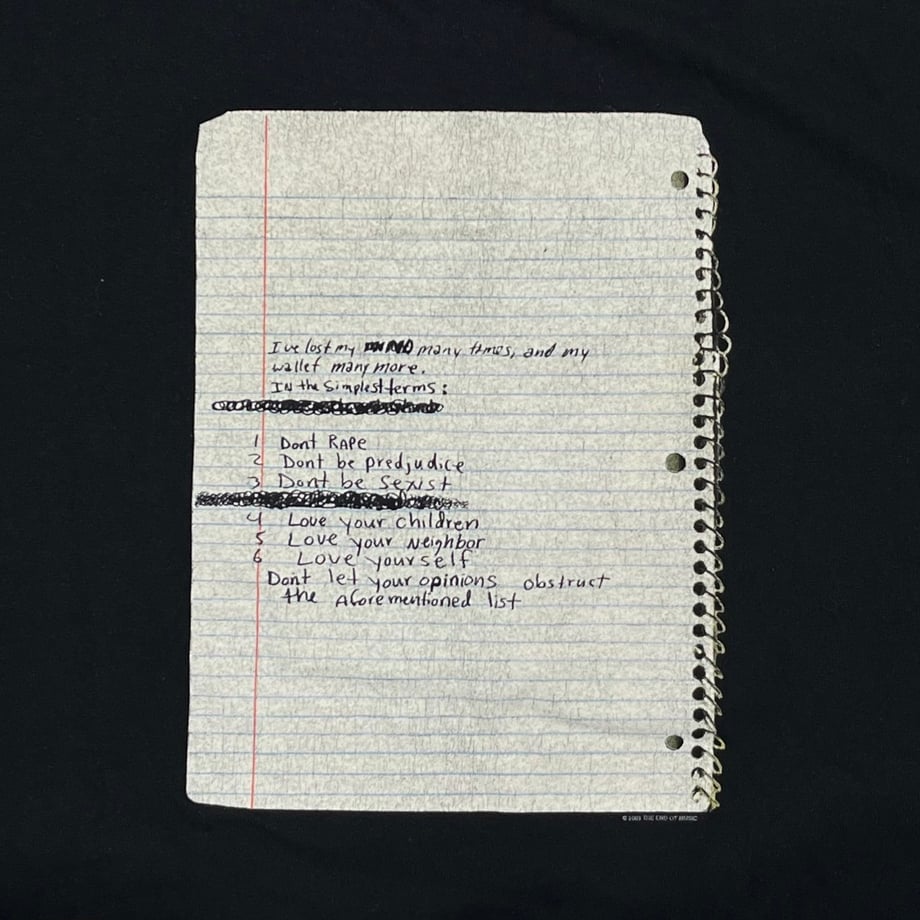 I've lost my MIND many times, and my
wallet many more.
IN the Simplest terms:
1 Dont RAPe
2 Dont be predjudice
3 Dont be sexist
4 Love your children
5 Love your Neighbor
6 Love yourself
Dont let your opinions obstruct
the Aforementioned list
THE END OF MUSIC